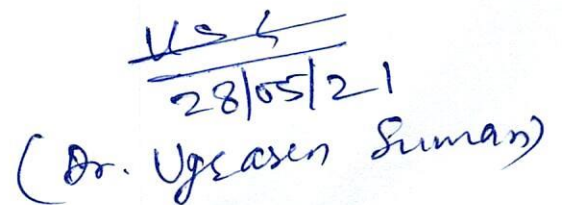 28/05/21
(Dr. Ugrasen Suman)